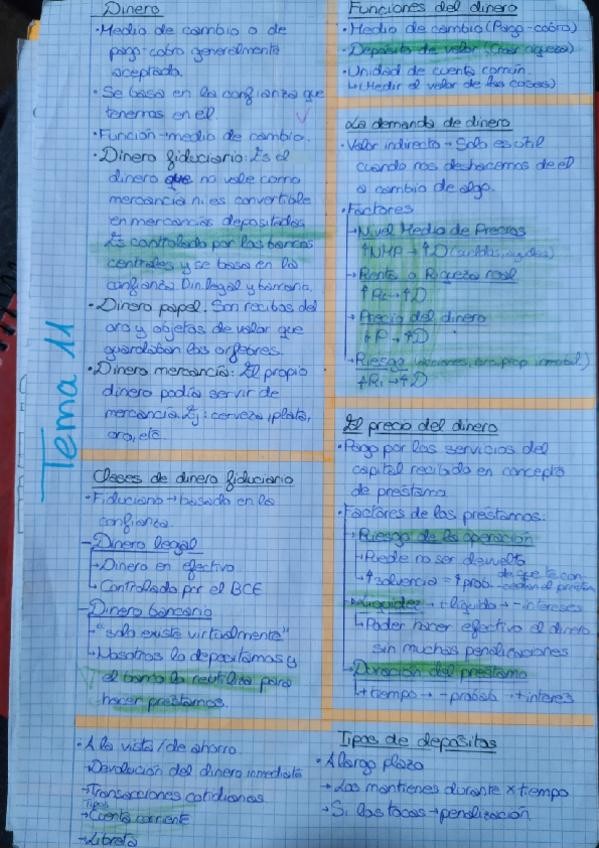 Tema 11
Dinero
·Medio de cambio o de
pago-cobro generalmente
aceptado.
·Se basa en la confianza que
tenemos en él
·Función→medio de cambio.
·Dinero fiduciario: Es el
dinero que no vale como
mercancía ni es convertible
en mercancías depositadas
Es controlado por los bancos
centrales y se basa en la
confianza Din legal y bancario.
·Dinero papel. Son recibos del
oro y objetos de valor que
guardaban los orfebres.
·Dinero mercancía: El propio
dinero podía servir de
mercancía. Ej: cerveza, plata,
oro, etc.
Clases de dinero fiduciario
·Fiduciario→basado en la
confianza.
-Dinero legal
→Dinero en efectivo
→Controlado por el BCE
-Dinero bancario
→"solo existe virtualmente"
→Nosotros lo depositamos y
el banco lo reutiliza para
hacer préstamos.
Funciones del dinero
·Medio de cambio (Pago-cobro)
·Depósito de valor (Crear riqueza)
·Unidad de cuenta común.
↳(Medir el valor de las cosas)
La demanda de dinero
·Valor indirecto→Solo es útil
cuando nos deshacemos de él
a cambio de algo.
·Factores
→Nivel Medio de Precios
↑NMP→↑D
→Renta o Riqueza real
↑Rr→↑D
→Precio del dinero
↑P→↑D
→Riesgo
↑Ri→↑D
El precio del dinero
·Pago por los servicios del
capital recibido en concepto
de préstamo
·Factores de los préstamos.
→Riesgo de la operación
→Puede no ser devuelto
→↑solvencia=↑prob. de que te con-
cedan el préstam
→Liquidez→+líquido→-intereses
→Poder hacer efectivo el dinero
sin muchas penalizaciones
→Duración del préstamo
↳+tiempo→-proósb→+interés
Tipos de depósitos
·A la vista/de ahorro.
→Devolución del dinero inmediata
→Transacciones cotidianas
Tipos
→Cuenta corriente
→Libreta
·A largo plazo
→Los mantienes durante x tiempo
→Si los tocas→penalización